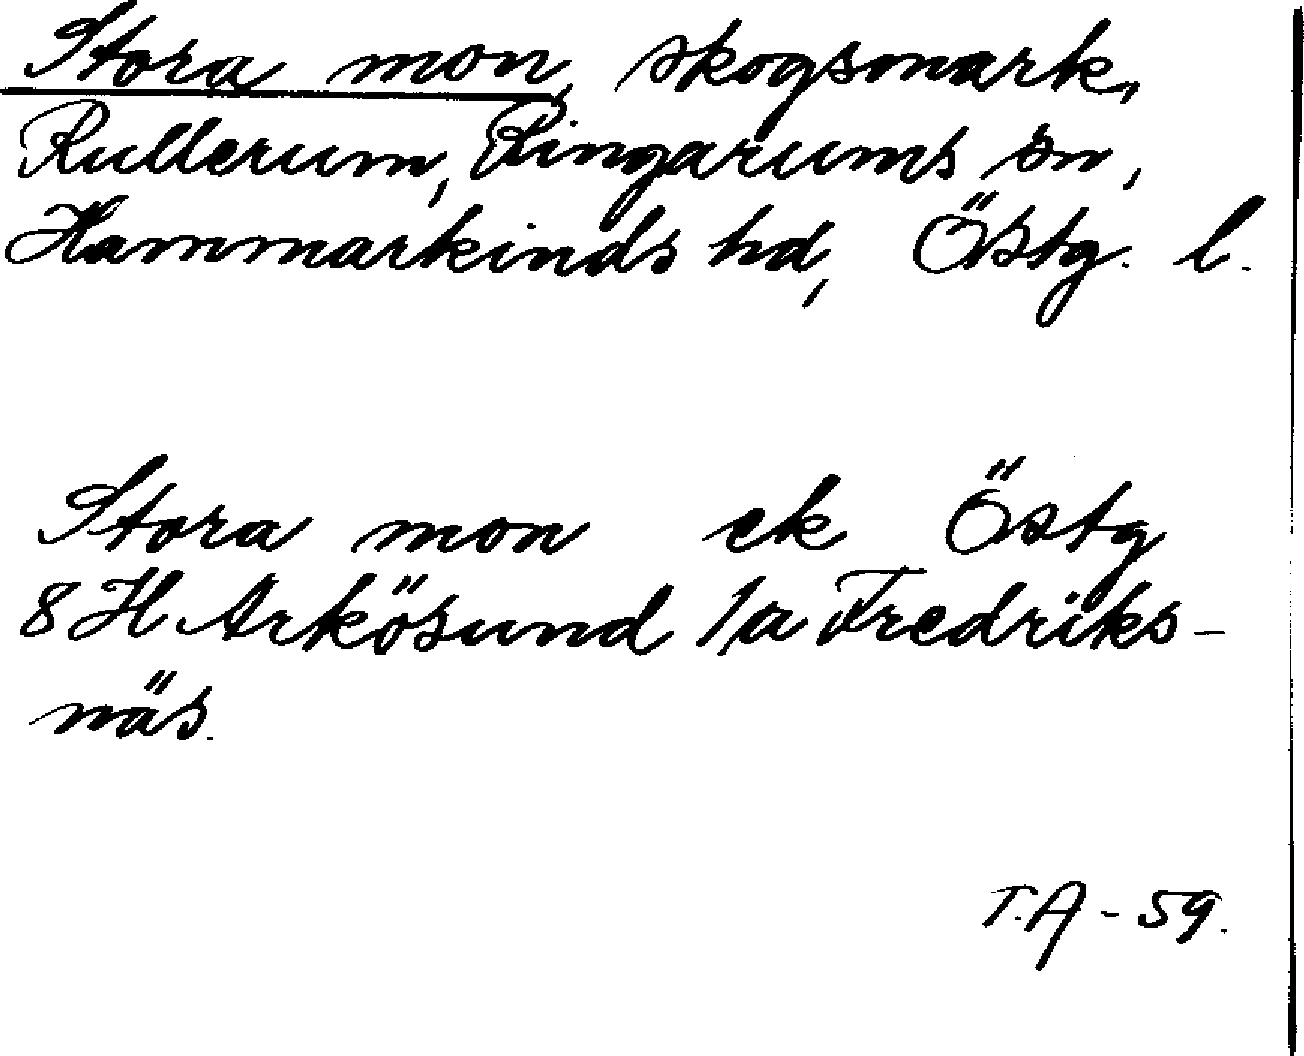 Stora mon, skogsmark,
Rullerum, Ringarums sn,
Hammarkinds hd, Östg. l.
Stora mon ek Östg
8 H Arkösund 1/a Fredriks-
näs.
T.A - 59.